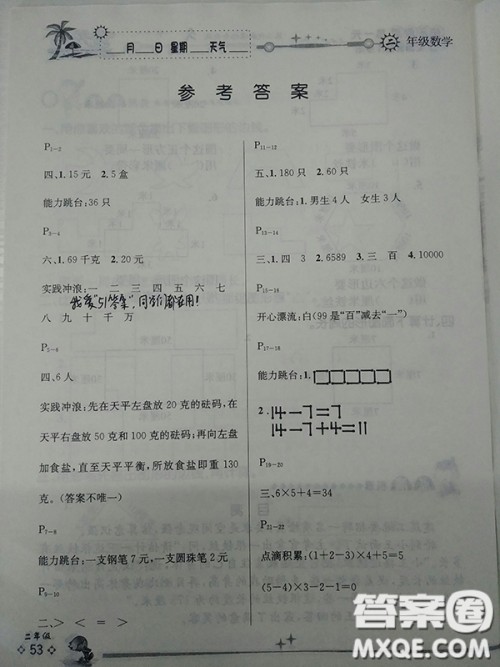 月 日 星期 天气
二 年级数学
参考答案
P1-2
四、1.15元 2.5盒
能力跳台:36只
P3-4
六、1.69千克 2.20元
实践冲浪:一 二 三 四 五 六 七
八 九 十 千 万
P5-6
四、6人
实践冲浪:先在天平左盘放20克的砝码,在
天平右盘放50克和100克的砝码;再向左盘
加食盐,直至天平平衡,所放食盐即重130
克。(答案不唯一)
P7-8
能力跳台:一支钢笔7元,一支圆珠笔2元
P9-10
二、> < = >
P11-12
五、1.180只 2.60只
能力跳台:1.男生4人 女生3人
P13-14
三、1.四 3 2.6589 3.三 百 4.10000
开心漂流:白(99是“百”减去“一”)
P17-18
能力跳台:1.
2.14-7=7
14-7+4=11
P19-20
三、6×5+4=34
P21-22
点滴积累:(1+2-3)×4+5=5
(5-4)×3-2-1=0
二年级
53
答案圈
MXQE.COM